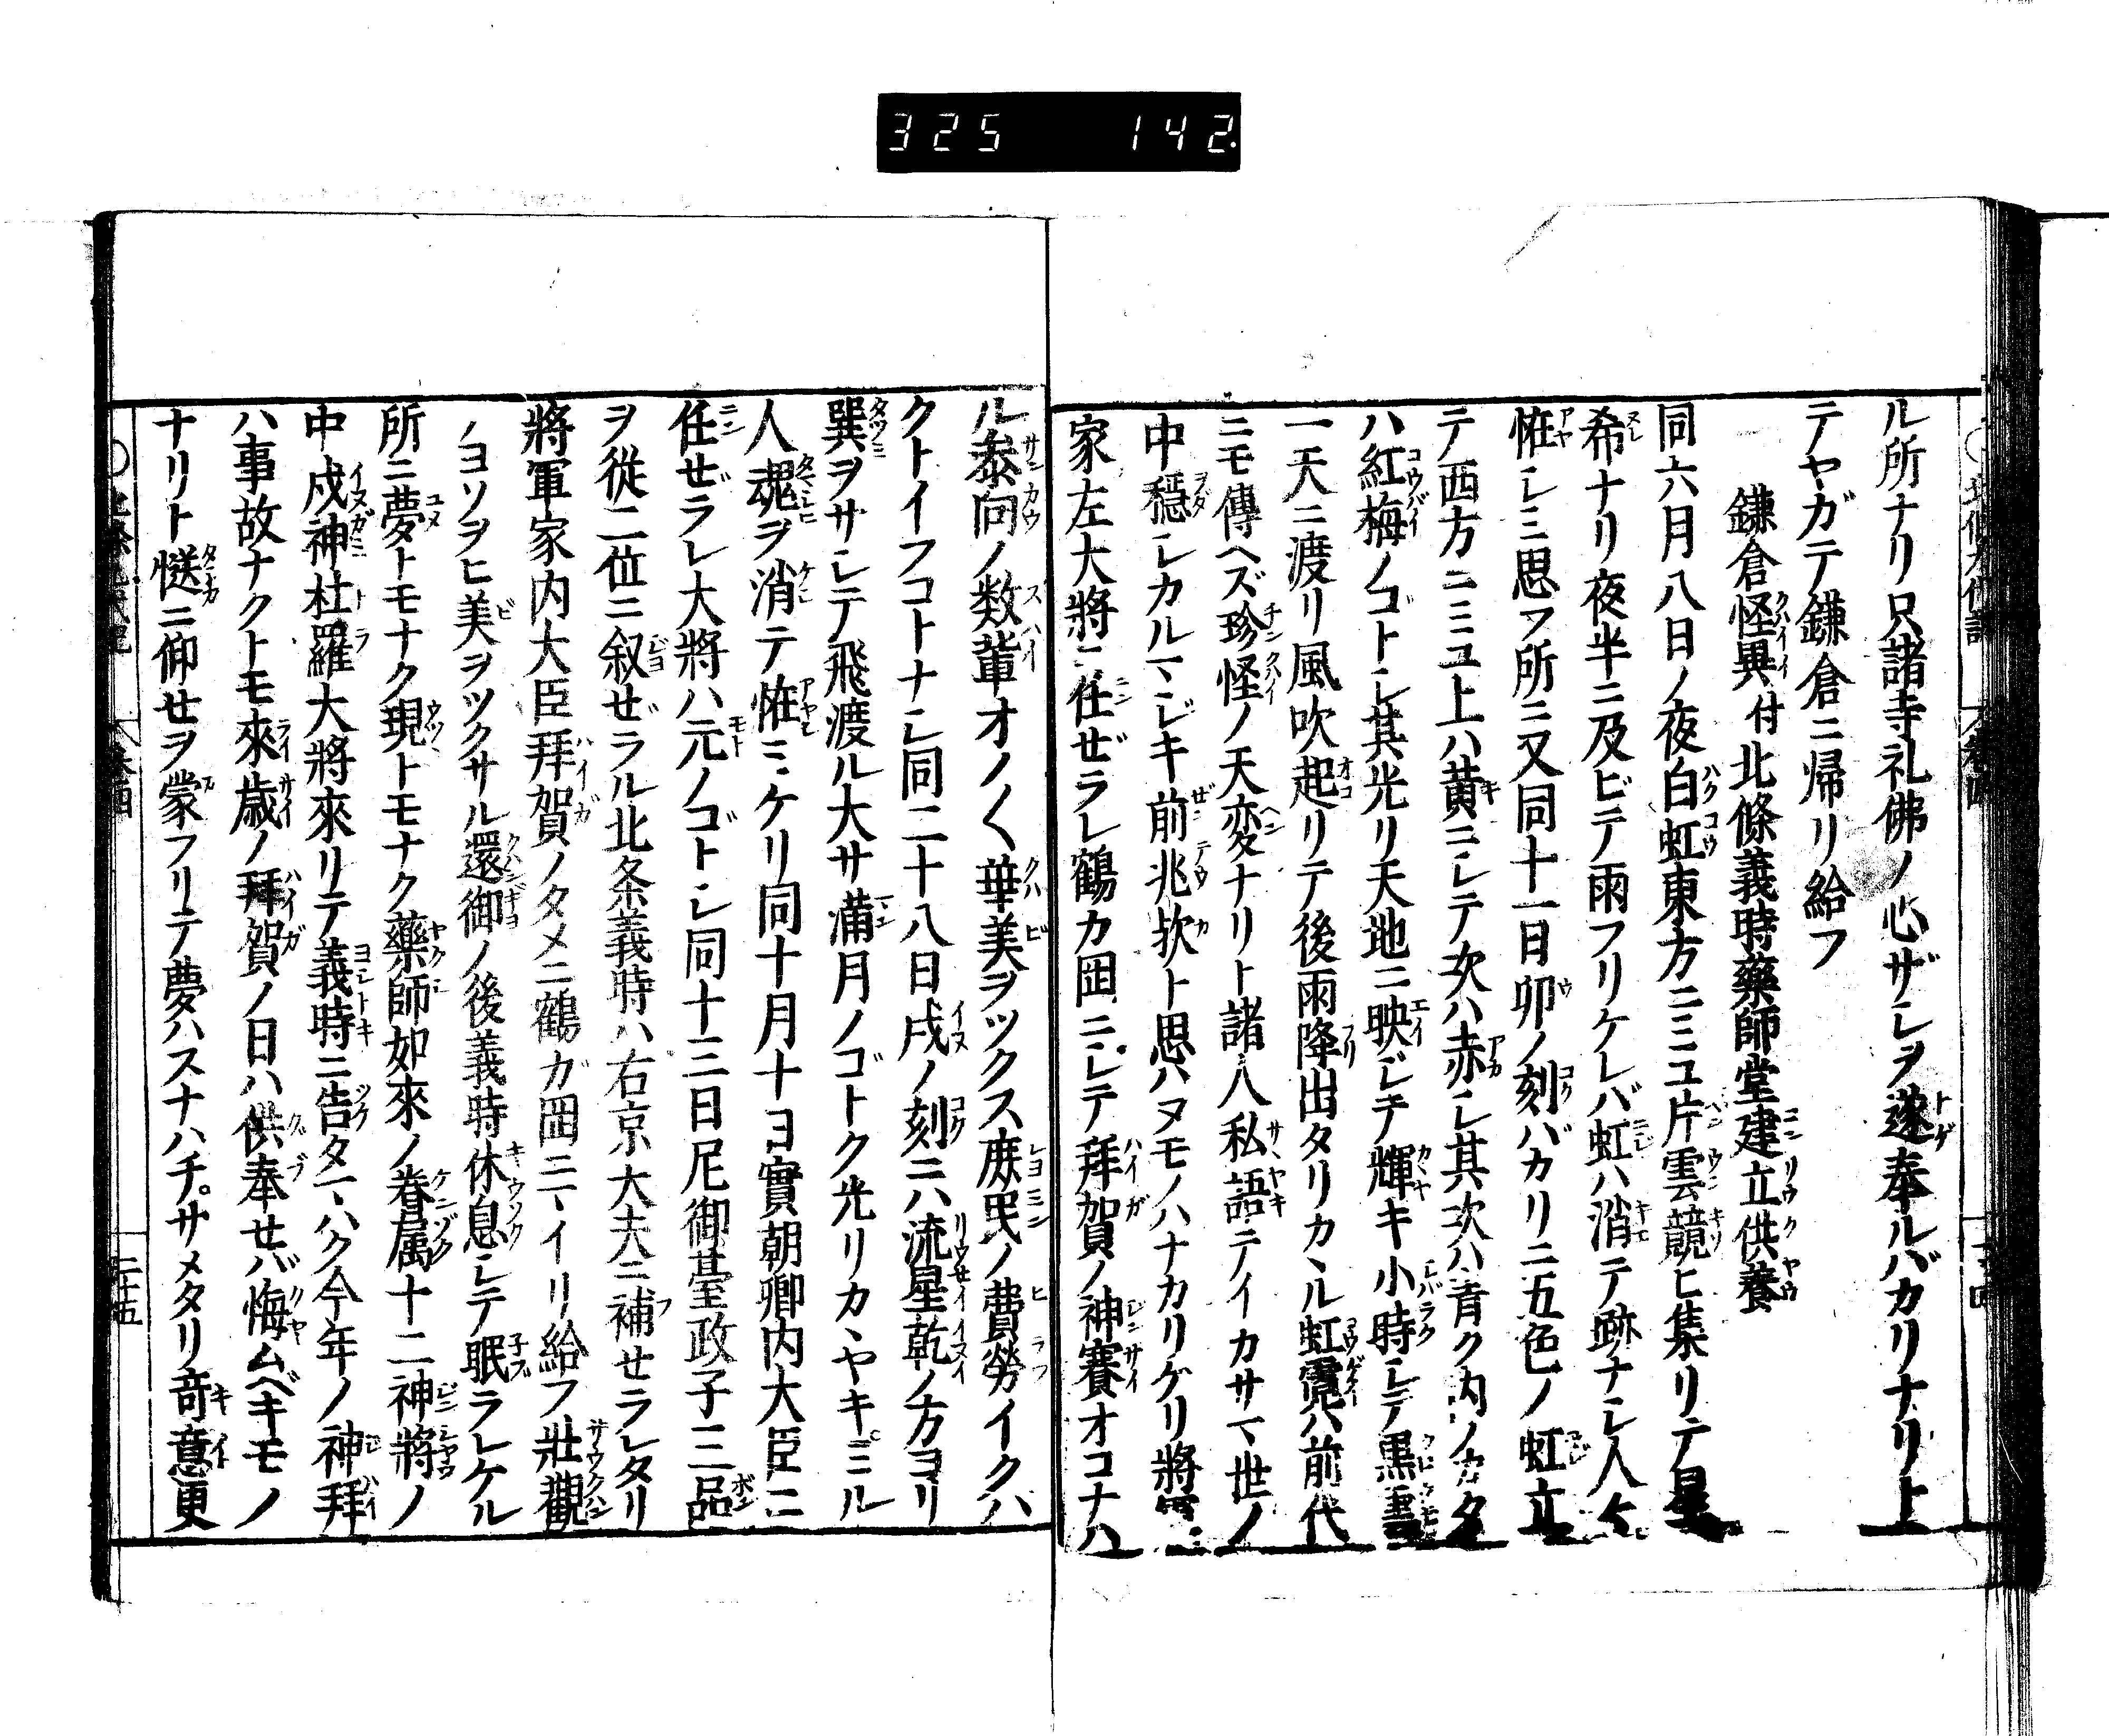 325 142
ル所ナリ只諸寺礼佛ノ心ザシヲ遂奉ルバカリナリ上
テヤガテ鎌倉ニ帰リ給フ
鎌倉怪異付北條義時藥師堂建立供養
同六月八日ノ夜白虹東方ニミユ片雲競ヒ集リテ星
希ナリ夜半ニ及ビテ雨フリケレバ虹ハ消テ跡ナシ人々
恠シミ思フ所ニ又同十一日卯ノ刻バカリニ五色ノ虹立
テ西方ニミユ上ハ黄ニシテ次ハ赤シ其次ハ青ク内ノカタ
ハ紅梅ノゴトシ其光リ天地ニ映ジテ輝キ小時シテ黒雲
一天ニ渡リ風吹起リテ後雨降出タリカヽル虹霓ハ前代
ニモ傳ヘズ珍怪ノ天変ナリト諸人私語テイカサマ世ノ
中穏シカルマジキ前兆欤ト思ハヌモノハナカリケリ將軍
家左大將ニ任ゼラレ鶴カ岡ニシテ拜賀ノ神賽オコナハ
ル叅向ノ数輩オノ〱華美ヲツクス庶民ノ費勞イクハ
クトイフコトナシ同二十八日戌ノ刻ニハ流星乾ノ方ヨリ
巽ヲサシテ飛渡ル大サ満月ノゴトク光リカヽヤキミル
人魂ヲ消テ恠ミケリ同十月十ヨ實朝卿内大臣ニ
任ゼラレ大將ハ元ノゴトシ同十三日尼御臺政子三品
ヲ從二位ニ叙ゼラル北条義時ハ右京大夫ニ補セラレタリ
將軍家内大臣拜賀ノタメニ鶴ガ岡ニマイリ給フ壯觀
ノヨソヲヒ美ヲツクサル還御ノ後義時休息シテ眠ラレケル
所ニ夢トモナク現トモナク藥師如來ノ眷属十二神將ノ
中戌神杜羅大將來リテ義時ニ告タマハク今年ノ神拜
ハ事故ナクトモ來歳ノ拜賀ノ日ハ供奉セバ悔ムベキモノ
ナリト慥ニ仰セヲ蒙フリテ夢ハスナハチサメタリ奇意更
二十五